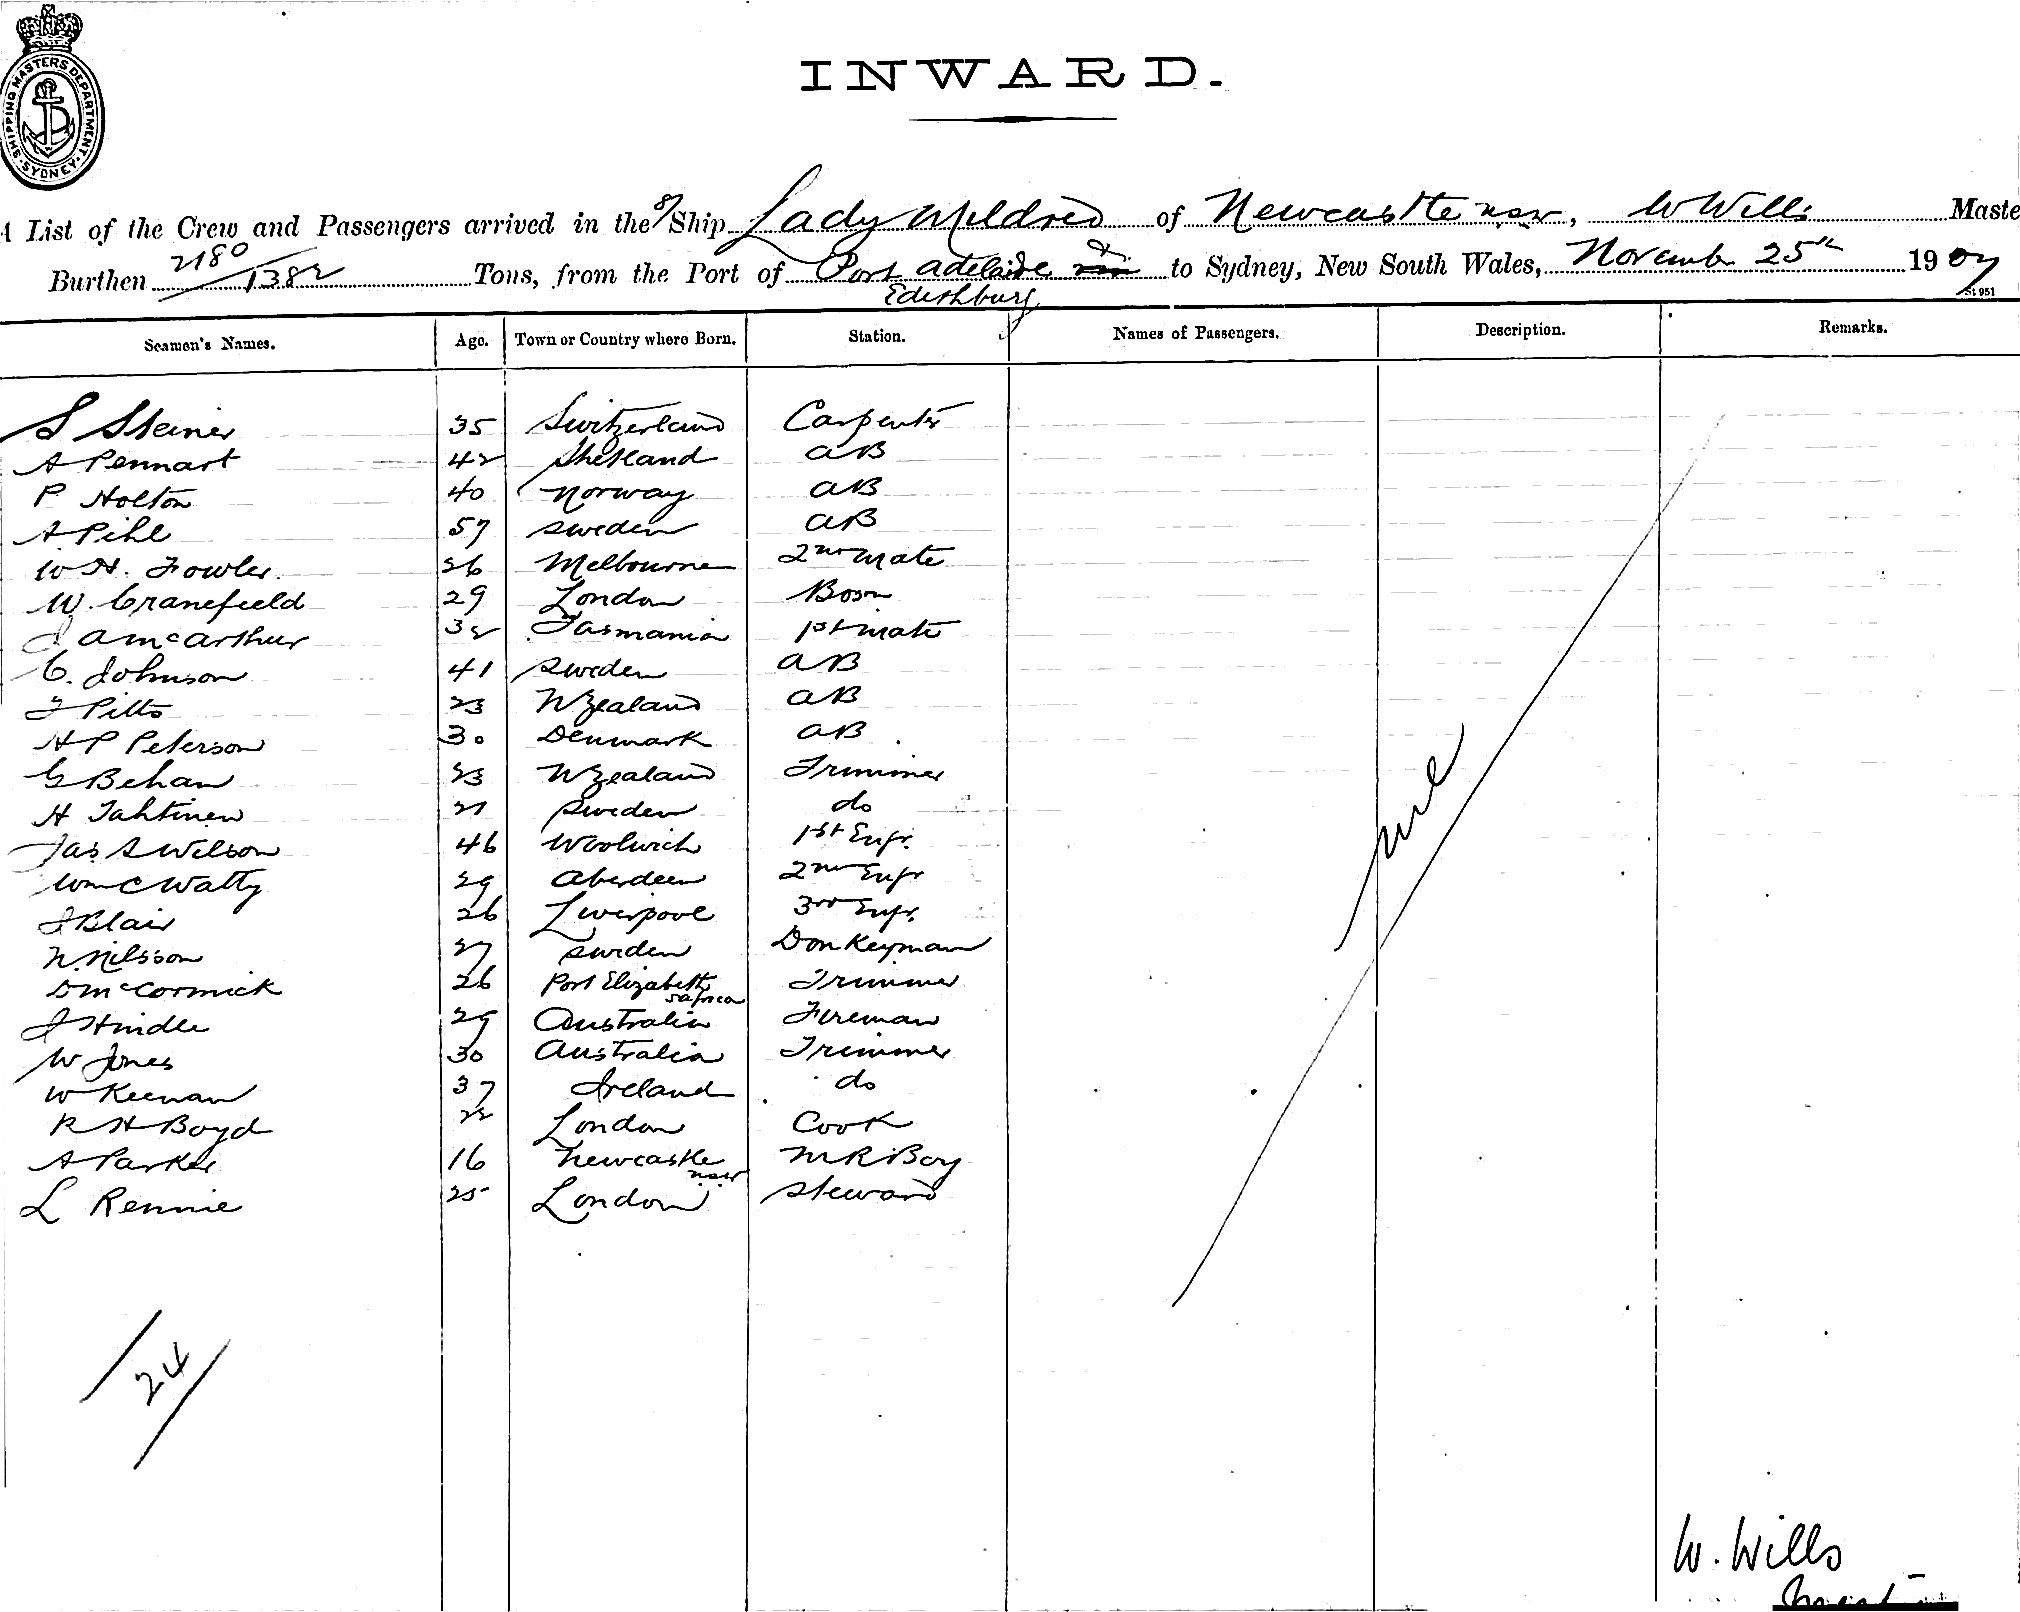 SHIPPING MASTERS DEPARTMENT · SYDNEY ·
INWARD.
A List of the Crew and Passengers arrived in the S/Ship Lady Mildred of Newcastle NSW, W Wills Maste
Burthen 2180/1382 Tons, from the Port of Port Adelaide & to Sydney, New South Wales, November 25th 1907
Edithburg
St 951
Seamen's Names. Age. Town or Country where Born. Station. Names of Passengers. Description. Remarks.
S Steiner 35 Switzerland Carpenter
A Pennart 42 Shetland AB
P Holton 40 Norway AB
A Pihl 57 Sweden AB
W H. Fowler 26 Melbourne 2nd Mate
W. Cranefield 29 London Bosn
J A McArthur 32 Tasmania 1st Mate
C. Johnson 41 Sweden AB
J Pitts 23 N Zealand AB
H P Peterson 30 Denmark AB
G Behan 23 N Zealand Trimmer
H Tahtinen 21 Sweden do
Jas S Wilson 46 Woolwich 1st Engr.
Wm C Watty 29 Aberdeen 2nd Engr
J Blair 26 Liverpool 3rd Engr.
N. Nilsson 27 Sweden Donkeyman
D McCormick 26 Port Elizabeth S Africa Trimmer
J Hindle 29 Australia Fireman
W Jones 30 Australia Trimmer
W Keenan 37 Ireland do
R H Boyd 22 London Cook
A Parker 16 Newcastle NSW M R Boy
L Rennie 25 London Steward
nil
24
W. Wills